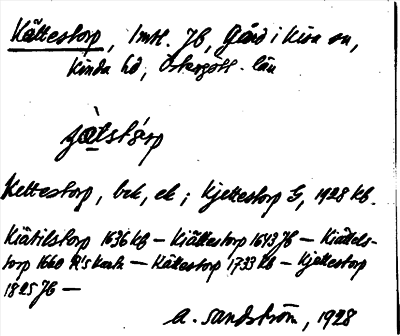 Kättestorp, 1 mtl. Jb, Gård i Kisa sn,
Kinda hd, Östergötl. län
Kettestorp, bek, ek; Kjettestorp G, 1928 kb.
Kiätilstorp 1636 kb – Kiättestorp 1643 Jb – Kiättels-
torp 1660 R's karta – Kättestorp 1733 kb – Kjettestorp
1825 Jb –
A. Sandström, 1928